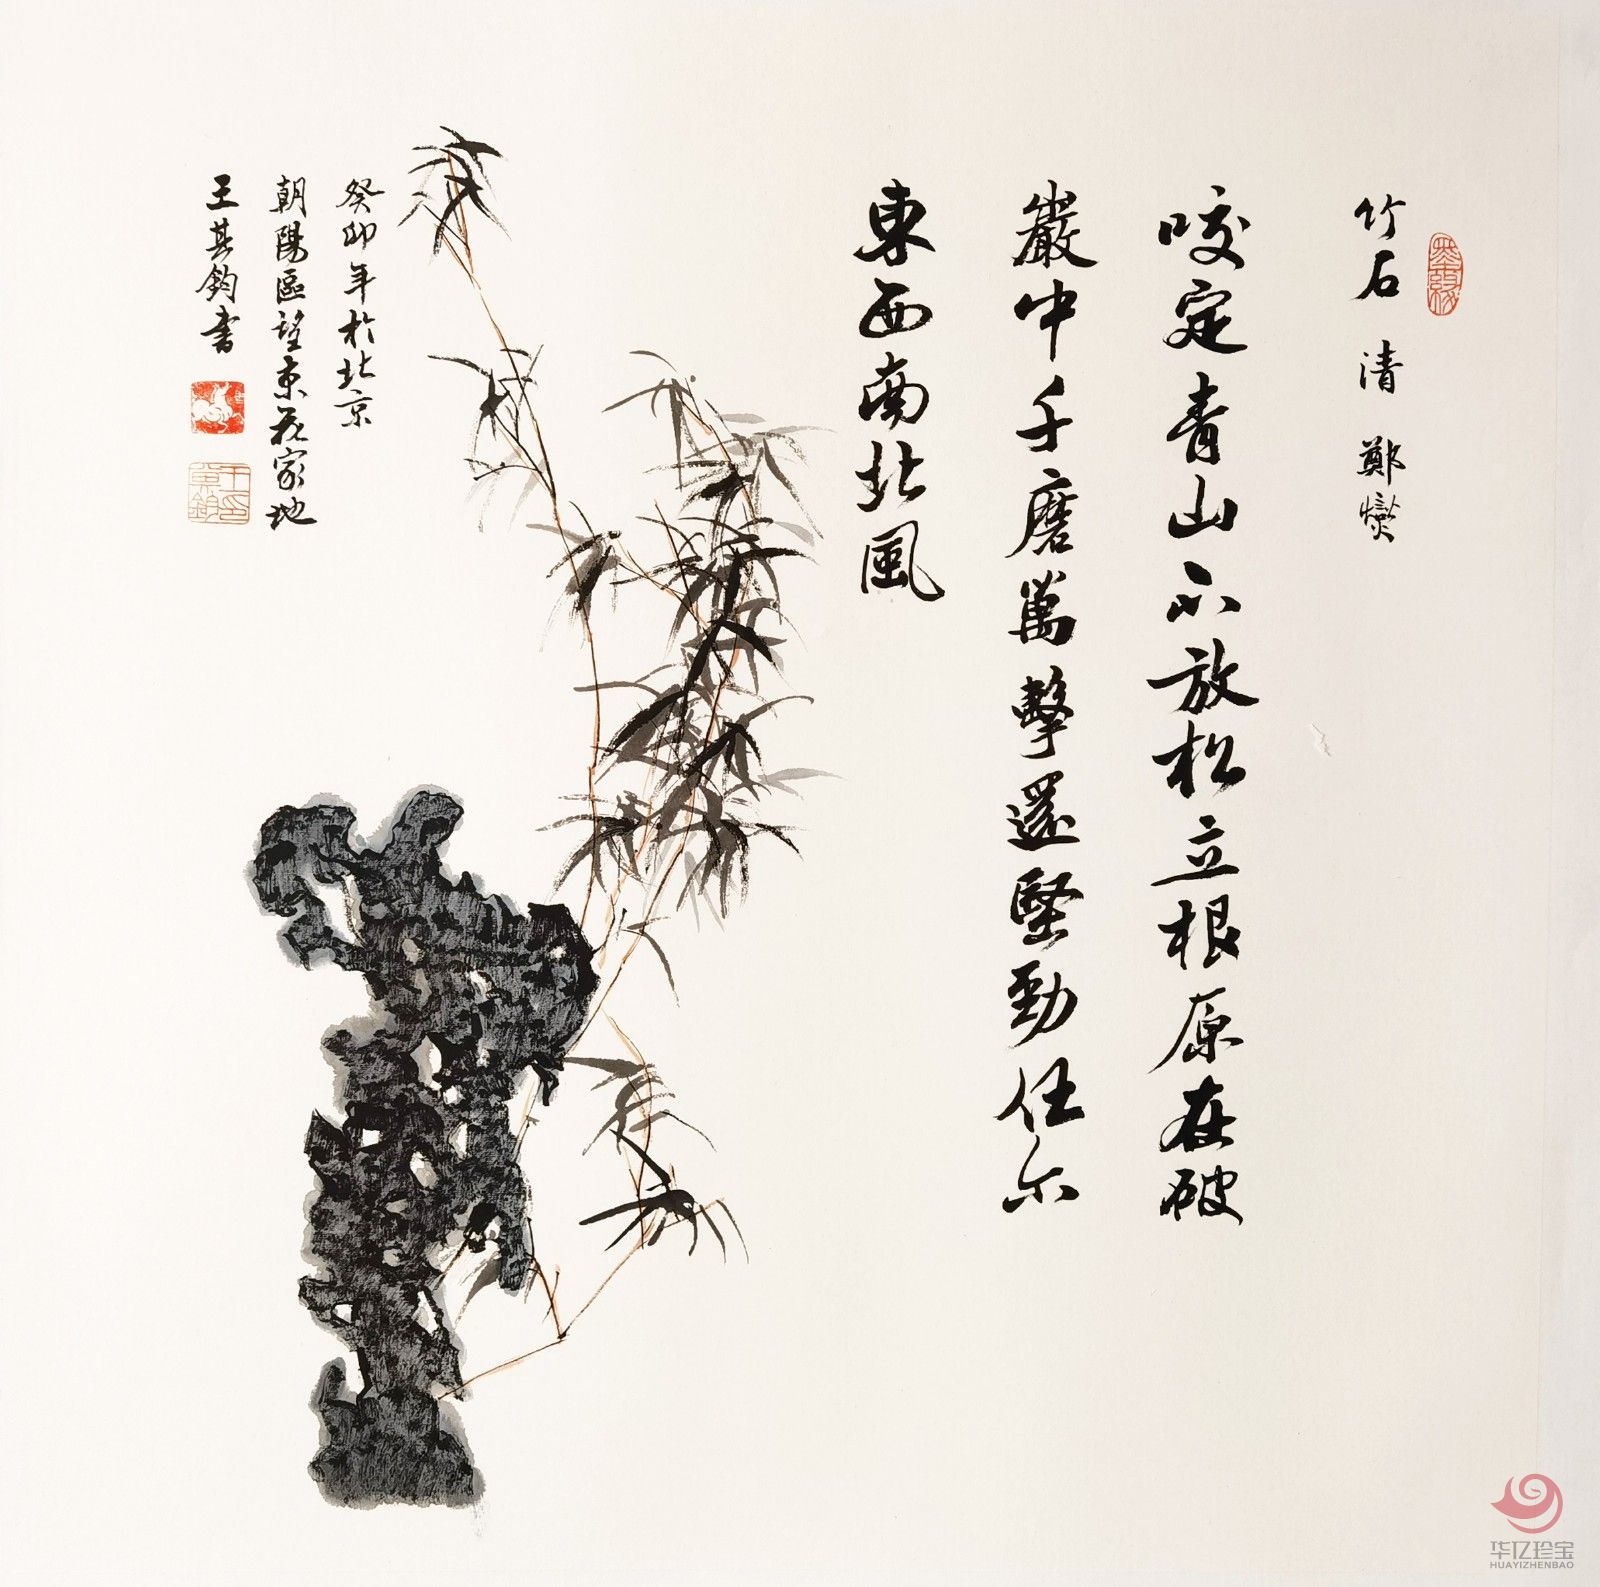 竹石 清 鄭燮
咬定青山不放松立根原在破
巖中千磨萬擊還堅勁任尔
東西南北風
癸卯年於北京
朝陽區望京花家地
王其鈞書
王其鈞印
华亿珍宝
HUAYIZHENBAO